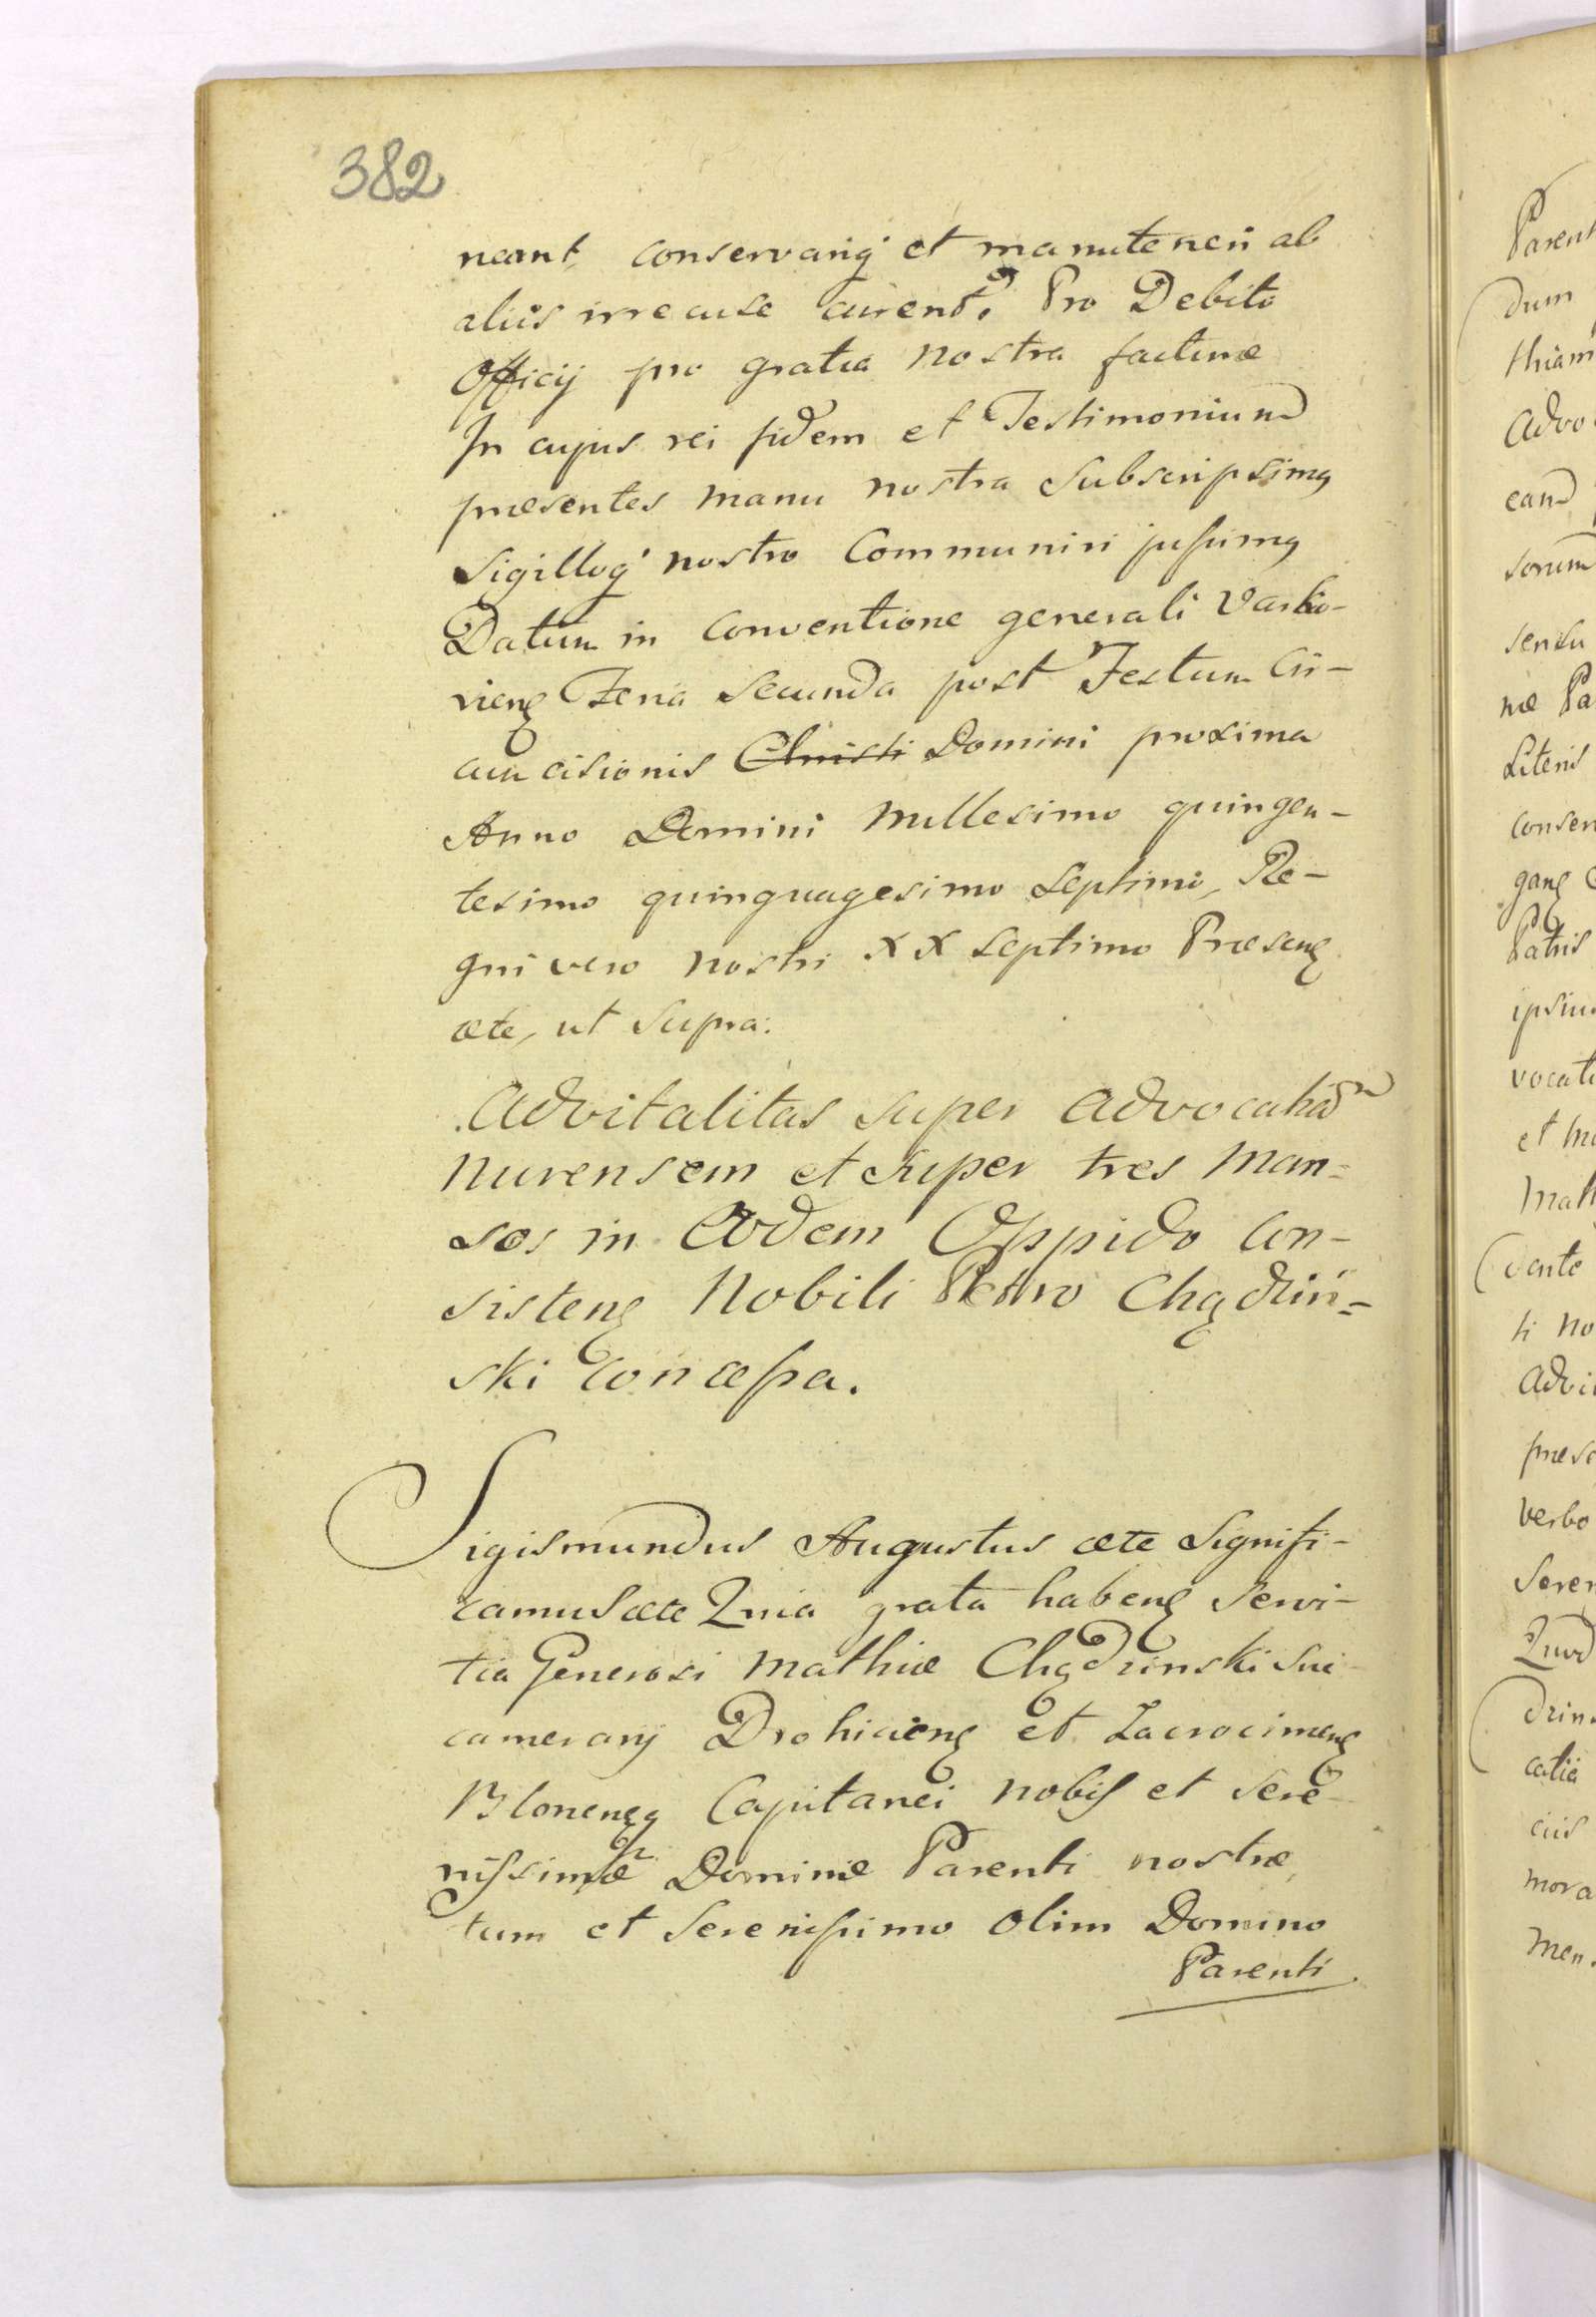 382
neant, conservariq et manuteneri ab
aliis irrecuse curent. Pro Debito
Officij pro gratia nostra facturæ
In cujus rei fidem et Testimonium
præsentes manu nostra Subscripsimq
Sigilloq nostro Communiri jussimq
Datum in Conventione generali Varko-
vienȝ Feria Secunda post Festum Cir-
cumcisionis Christi Domini proxima
Anno Domini Millesimo quingen-
tesimo quinquagesimo Septimo, Re-
gni vero nostri XX Septimo Præsenȝ
æte, ut Supra:
Advitalitas super Advocatiam
Nurensem et super tres Man=
sos in Eodem Oppido Con-
sistenȝ Nobili Petro Chądziń=
ski Concessa.
Sigismundus Augustus æte Signifi-
camus æte Quia grata habenȝ Servi-
tia Generosi Mathiæ Chądzinski Suc
camerarij Drohicienȝ et Zacrocimenȝ
Blonenȝq Capitanei nobis et Sere-
nissimæ Dominæ Parenti nostræ,
tum et Serenissimo olim Domino
Parenti
Parent
dum
thiam
Advo
eand
sorum
sensu
næ Pa
Literis
conser
ganȝ
Patris
ipsius
vocati
et
Math
cente
ti no
Advi
præse
verbo
Seren
Quod
dzin
catia
cus
mora
men